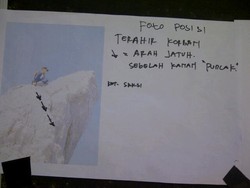 FOTO POSISI
TERAHIR KORBAN
↓ = ARAH JATUH.
SEBELAH KANAN "PUNCAK"